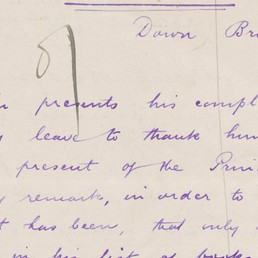 Down Br
presents his compl
leave to thank him
present of the Prin
remark, in order to
has been, that only
in his list of books